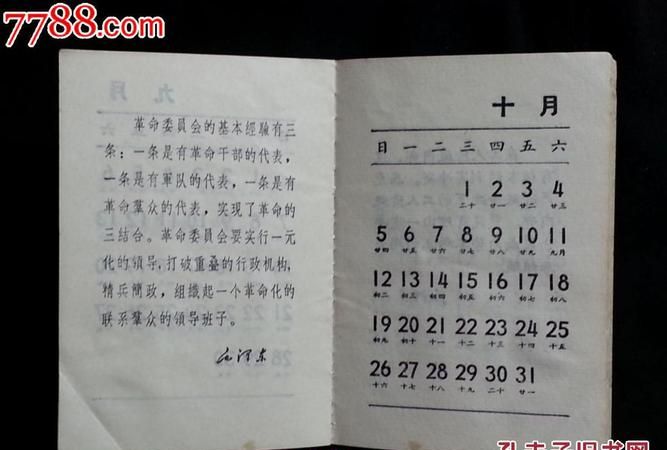 7788.com
革命委員会的基本經驗有三
条：一条是有革命干部的代表，
一条是有軍队的代表，一条是有
革命羣众的代表，实現了革命的
三結合。革命委員会要实行一元
化的領导，打破重叠的行政机构，
精兵簡政，組織起一个革命化的
联系羣众的領导班子。
毛泽东
十月
日 一 二 三 四 五 六
1 2 3 4
二十 廿一 廿二 廿三
5 6 7 8 9 10 11
廿四 廿五 廿六 廿七 廿八 廿九 九月
12 13 14 15 16 17 18
初二 初三 初四 初五 初六 初七 初八
19 20 21 22 23 24 25
初九 初十 十一 十二 十三 十四 十五
26 27 28 29 30 31
十六 十七 十八 十九 二十 廿一
孔夫子旧书网